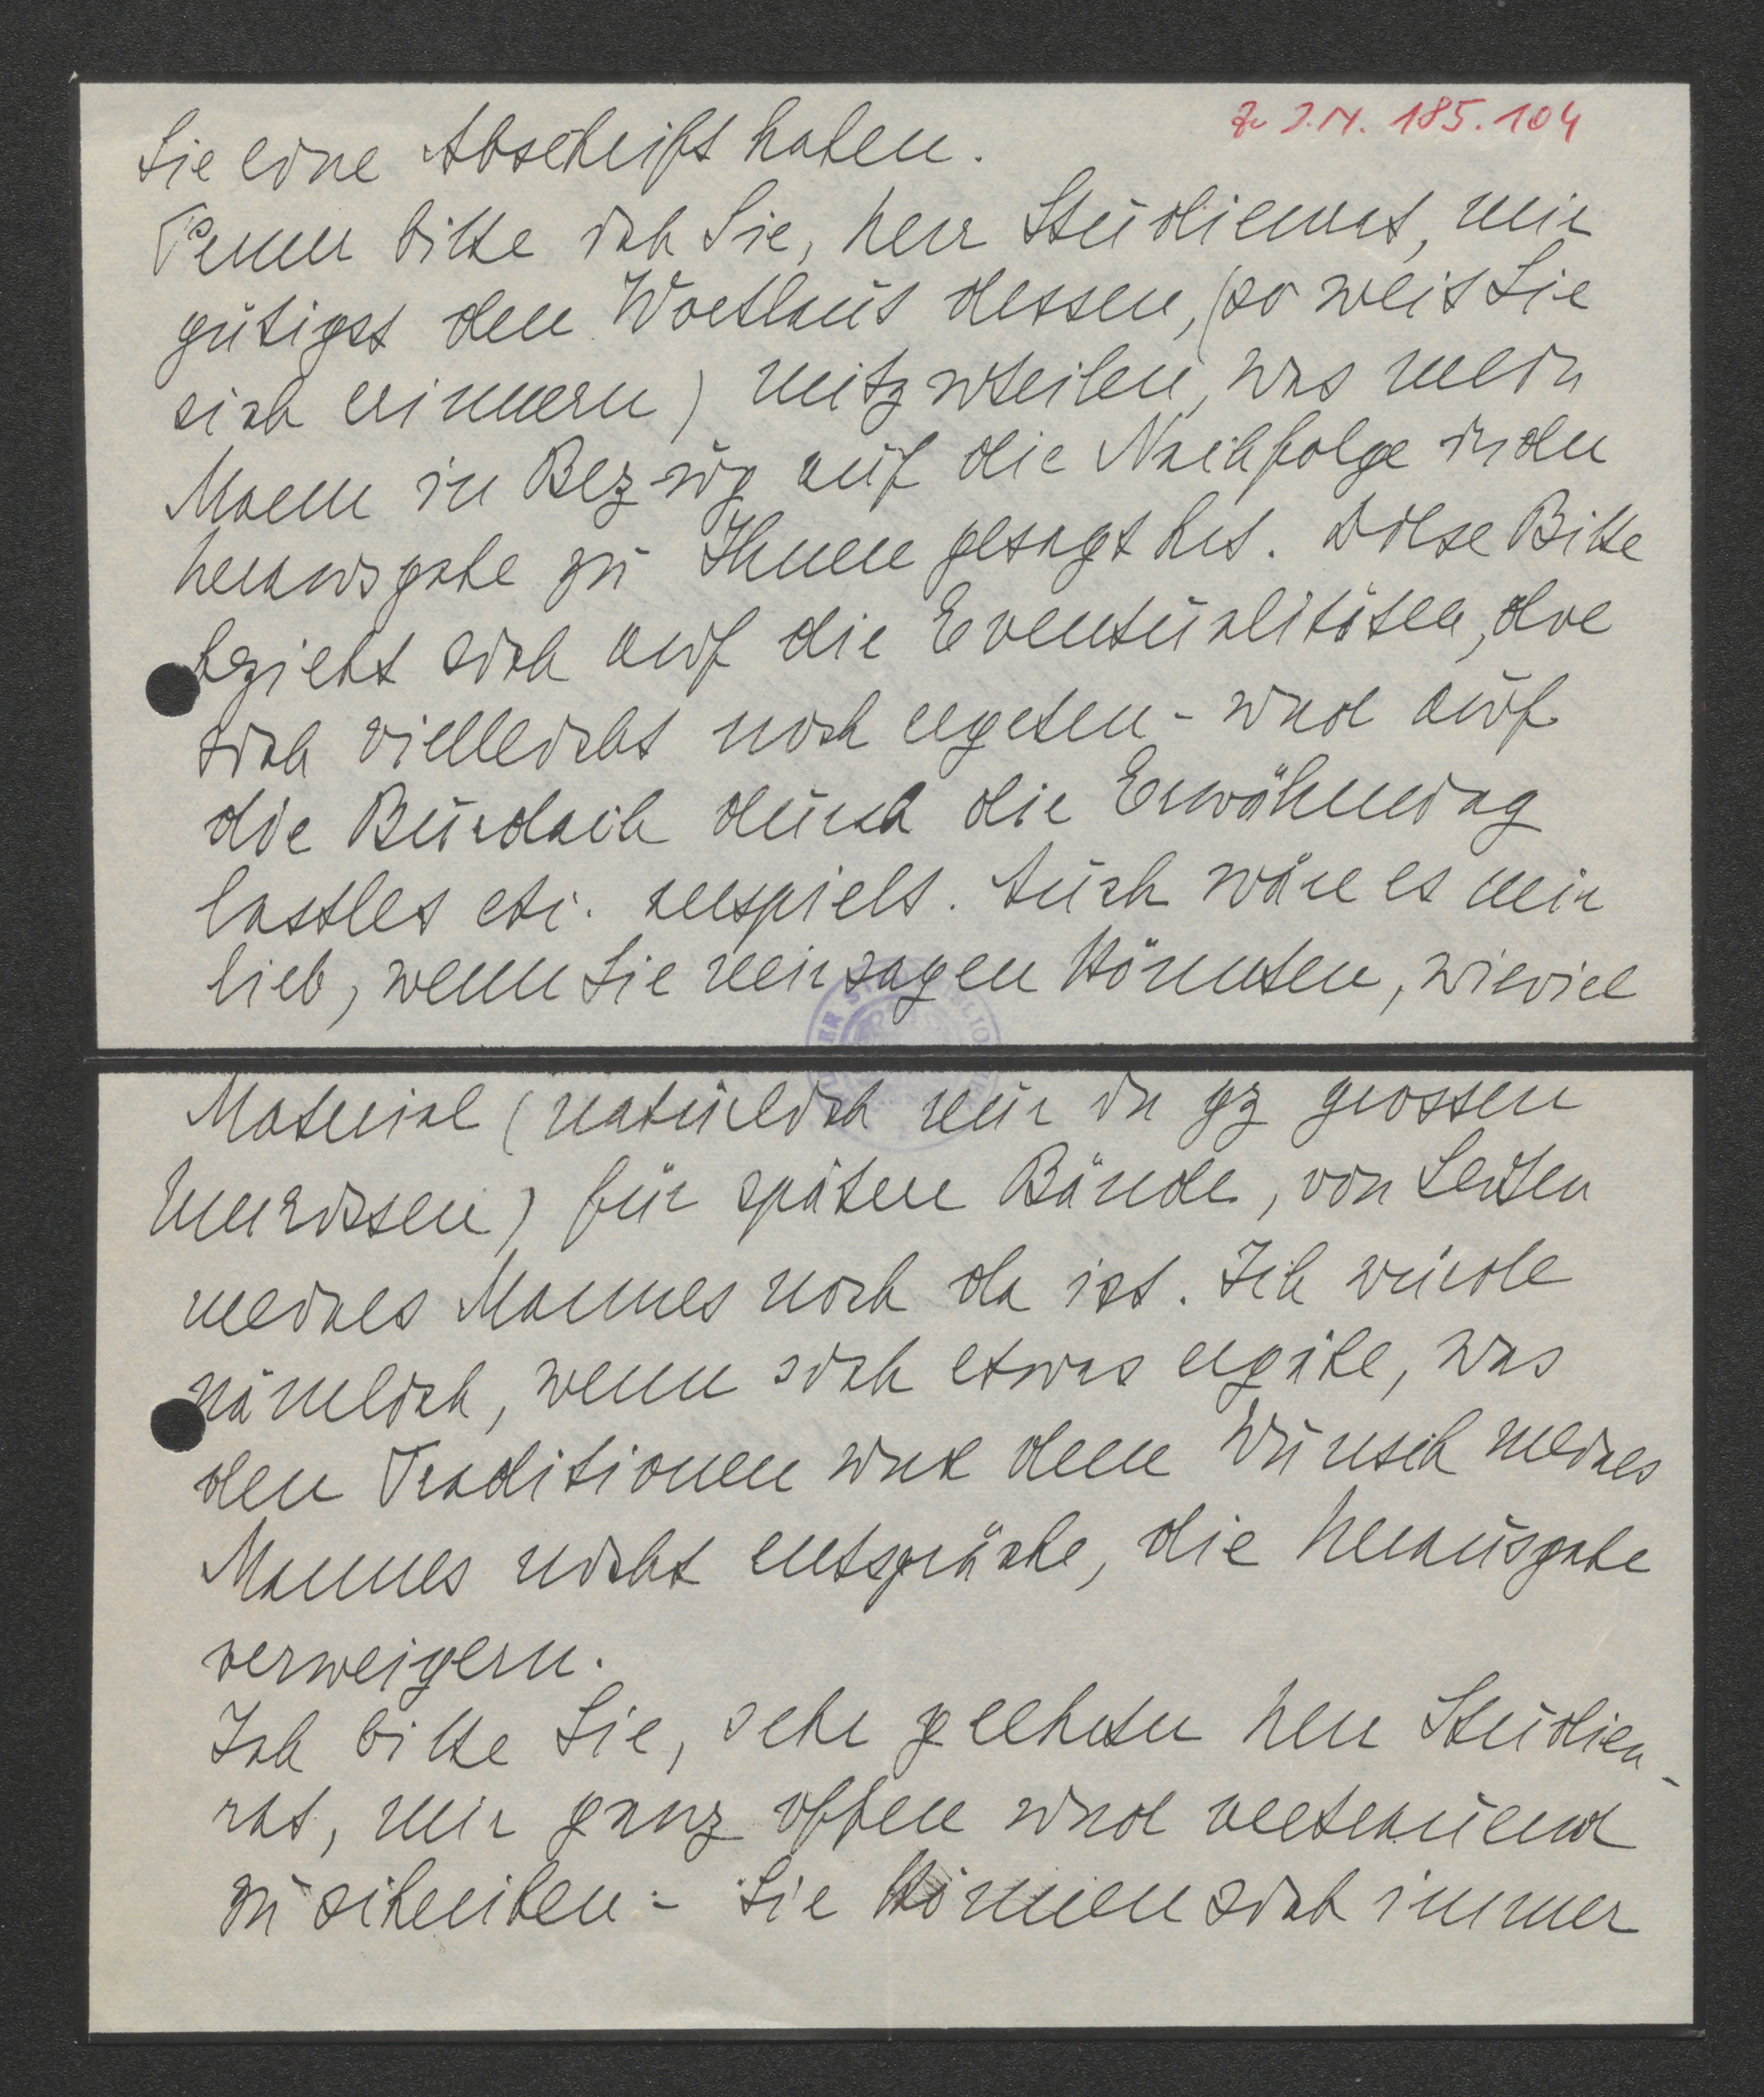 Zu I.N. 185.104
Sie eine Abschrift haben.
Ferner bitte ich Sie, Herr Studienrat, mir
gütigst den Wortlaut dessen, (so weit Sie
sich erinnern) mitzuteilen, was mein
Mann in Bezug auf die Nachfolge in der
Herausgabe zu Ihnen gesagt hat. Diese Bitte
bezieht sich auf die Eventualitäten, die
sich vielleicht noch ergeben - und auf
die Burdach durch die Erwähnung
Castles etc. anspielt. Auch wäre es mir
lieb, wenn Sie mir sagen könnten, wieviel
Material (natürlich nur in gz grossen
Umrissen) für spätere Bände, von Seiten
meines Mannes noch da ist. Ich würde
nämlich, wenn sich etwas ergäbe, was
den Traditionen und dem Wunsch meines
Mannes nicht entspräche, die Herausgabe
verweigern.
Ich bitte Sie, sehr geehrter Herr Studien-
rat, mir ganz offen und vertrauend
zu schreiben - Sie können sich immer